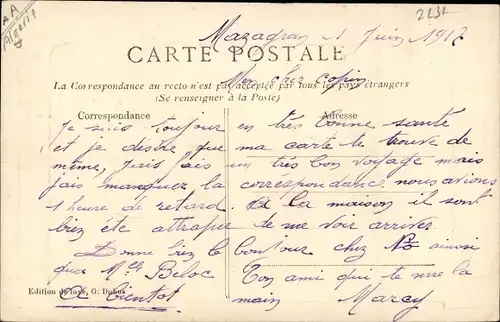 AA
Algérie
2232
Mazagran 1 Juin 1917
CARTE POSTALE
Mon cher copin
La Correspondance au recto n'est pas acceptée par tous les pays étrangers
(Se renseigner à la Poste)
Correspondance
Adresse
Je suis toujour en très bonne santé
et je désire que ma carte te trouve de
même, j'ais fais un très bon voyage mais
jais manquer la correspondance nous avions
1 heure de retard. A la maison il sont
biez été attrapé de me voir arriver
Donne biez le bonjour chez ainsi
qua Mlle Beloc Ton ami qui te serre la
Edition de luxe, G. Dubus
A bientot main Marcy